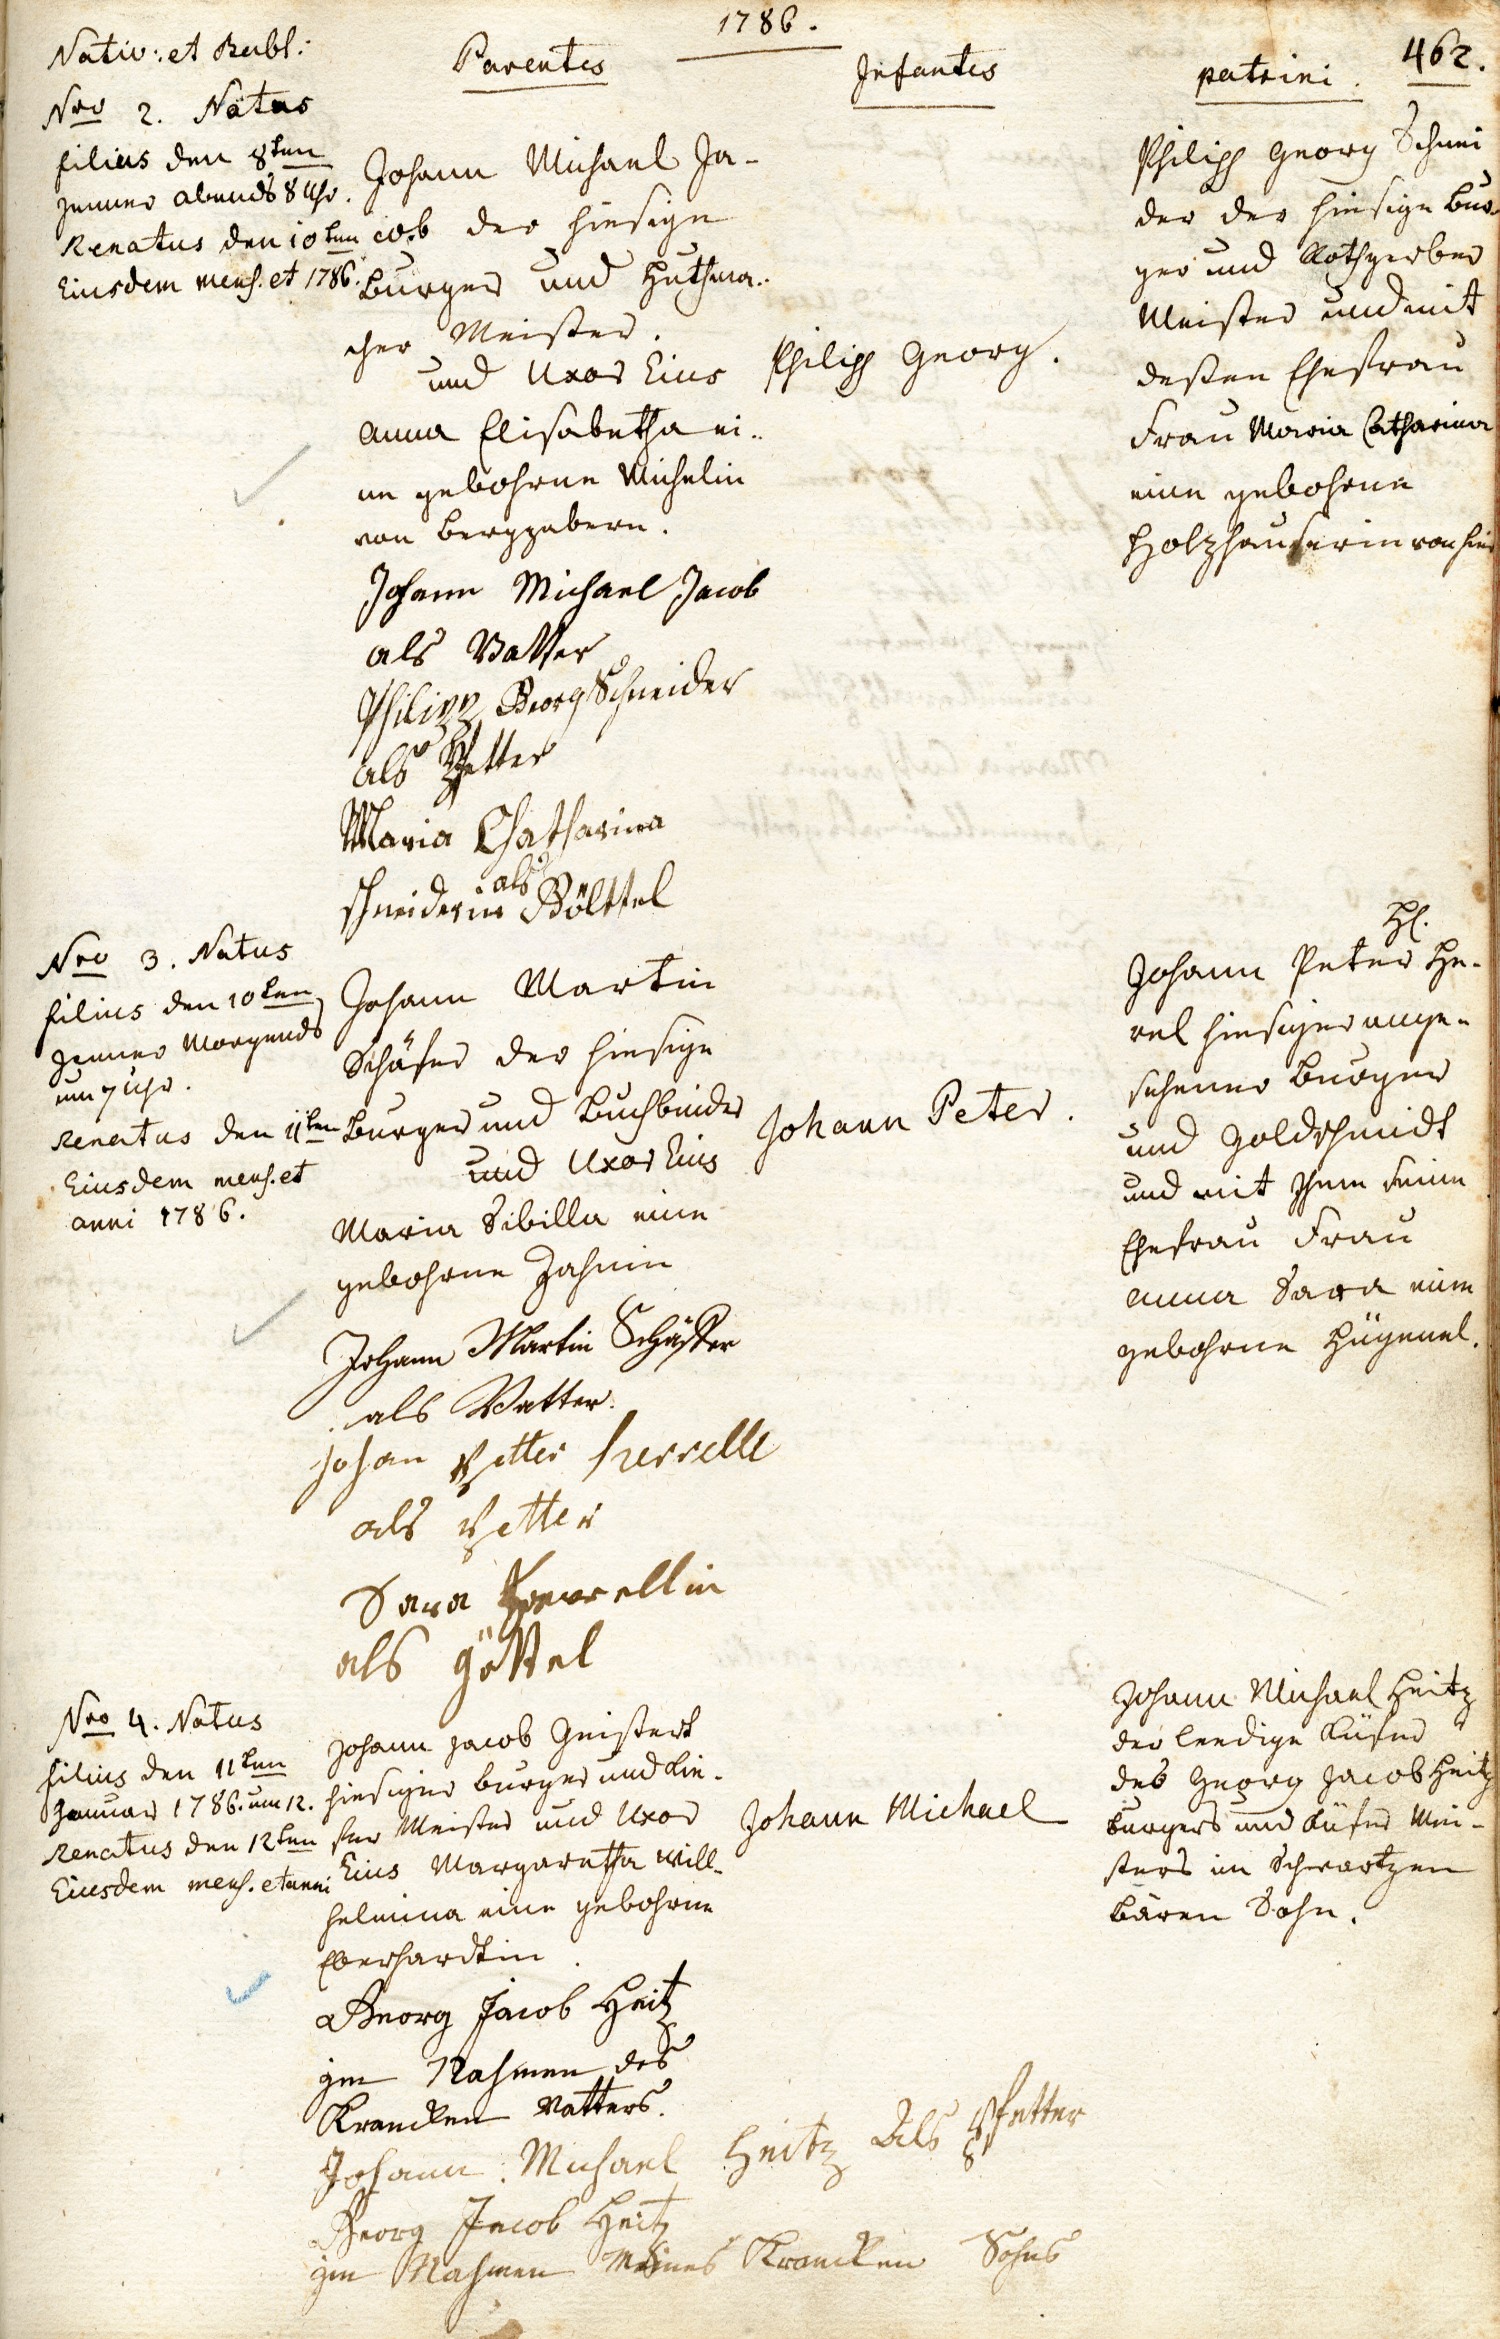 1786.
462.
Nativ: et Bubl:
Parentes
Infantes
patrini.
Nro 2. Natus
filius den 8ten
Jenner abends 8 Uhr.
Renatus den 10ten
Eiusdem mens. et 1786.
Johann Michael Ja-
cob der hiesige
Burger und Huthma-
cher Meister.
und Uxor Eius
Anna Elisabetha ei-
ne gebohrne Michelin
von Bergzabern.
Philipp Georg.
Philipp Georg Schnei
der der hiesige Bur-
ger und Rothgerber
Meister und mit
deßen Ehefrau
Frau Maria Catharina
eine gebohrne
Holzhauserin von hier
Johann Michael Jacob
als Vatter
Philipp Georg Schneider
als Pfetter
Maria Chatharina
schneiderin als Göttel
Nro 3. Natus
filius den 10ten
Jenner Morgends
um 7 Uhr.
Renatus den 11ten
Eiusdem mens. et
anni 1786.
Johann Martin
Schäfer der hiesige
Burger und Buchbinder
und Uxor Eius
Maria Sibilla eine
gebohrne Zahnin
Johann Peter.
H.
Johann Peter He-
rel hiesiger ange-
sehener Burger
und Goldschmidt
und mit Ihm seine
Ehefrau Frau
Anna Sara eine
gebohrne Hügenel.
Johann Martin Schäffer
als Vatter.
Johan Petter herrelle
als Petter
Sara Herrellin
als göttel
Nro 4. Natus
filius den 11ten
Januar 1786. um 12.
Renatus den 12ten
Eiusdem mens. et anni
Johann Jacob Geistert
hiesiger Burger und Kie-
fer Meister und Uxor
Eius Margaretha Will-
helmina eine gebohrne
Eberhardtin.
Johann Michael
Johann Michael Heitz
der leedige Küfer
des Georg Jacob Heitz
Burgers und Küfer Mei-
sters im Schwartzen
Bären Sohn.
Georg Jacob Heitz
im Nahmen des
Krancken Vatters.
Johann Michael Heitz Als Pfetter
Georg Jacob Heitz
im Nahmen Meines Krancken Sohns